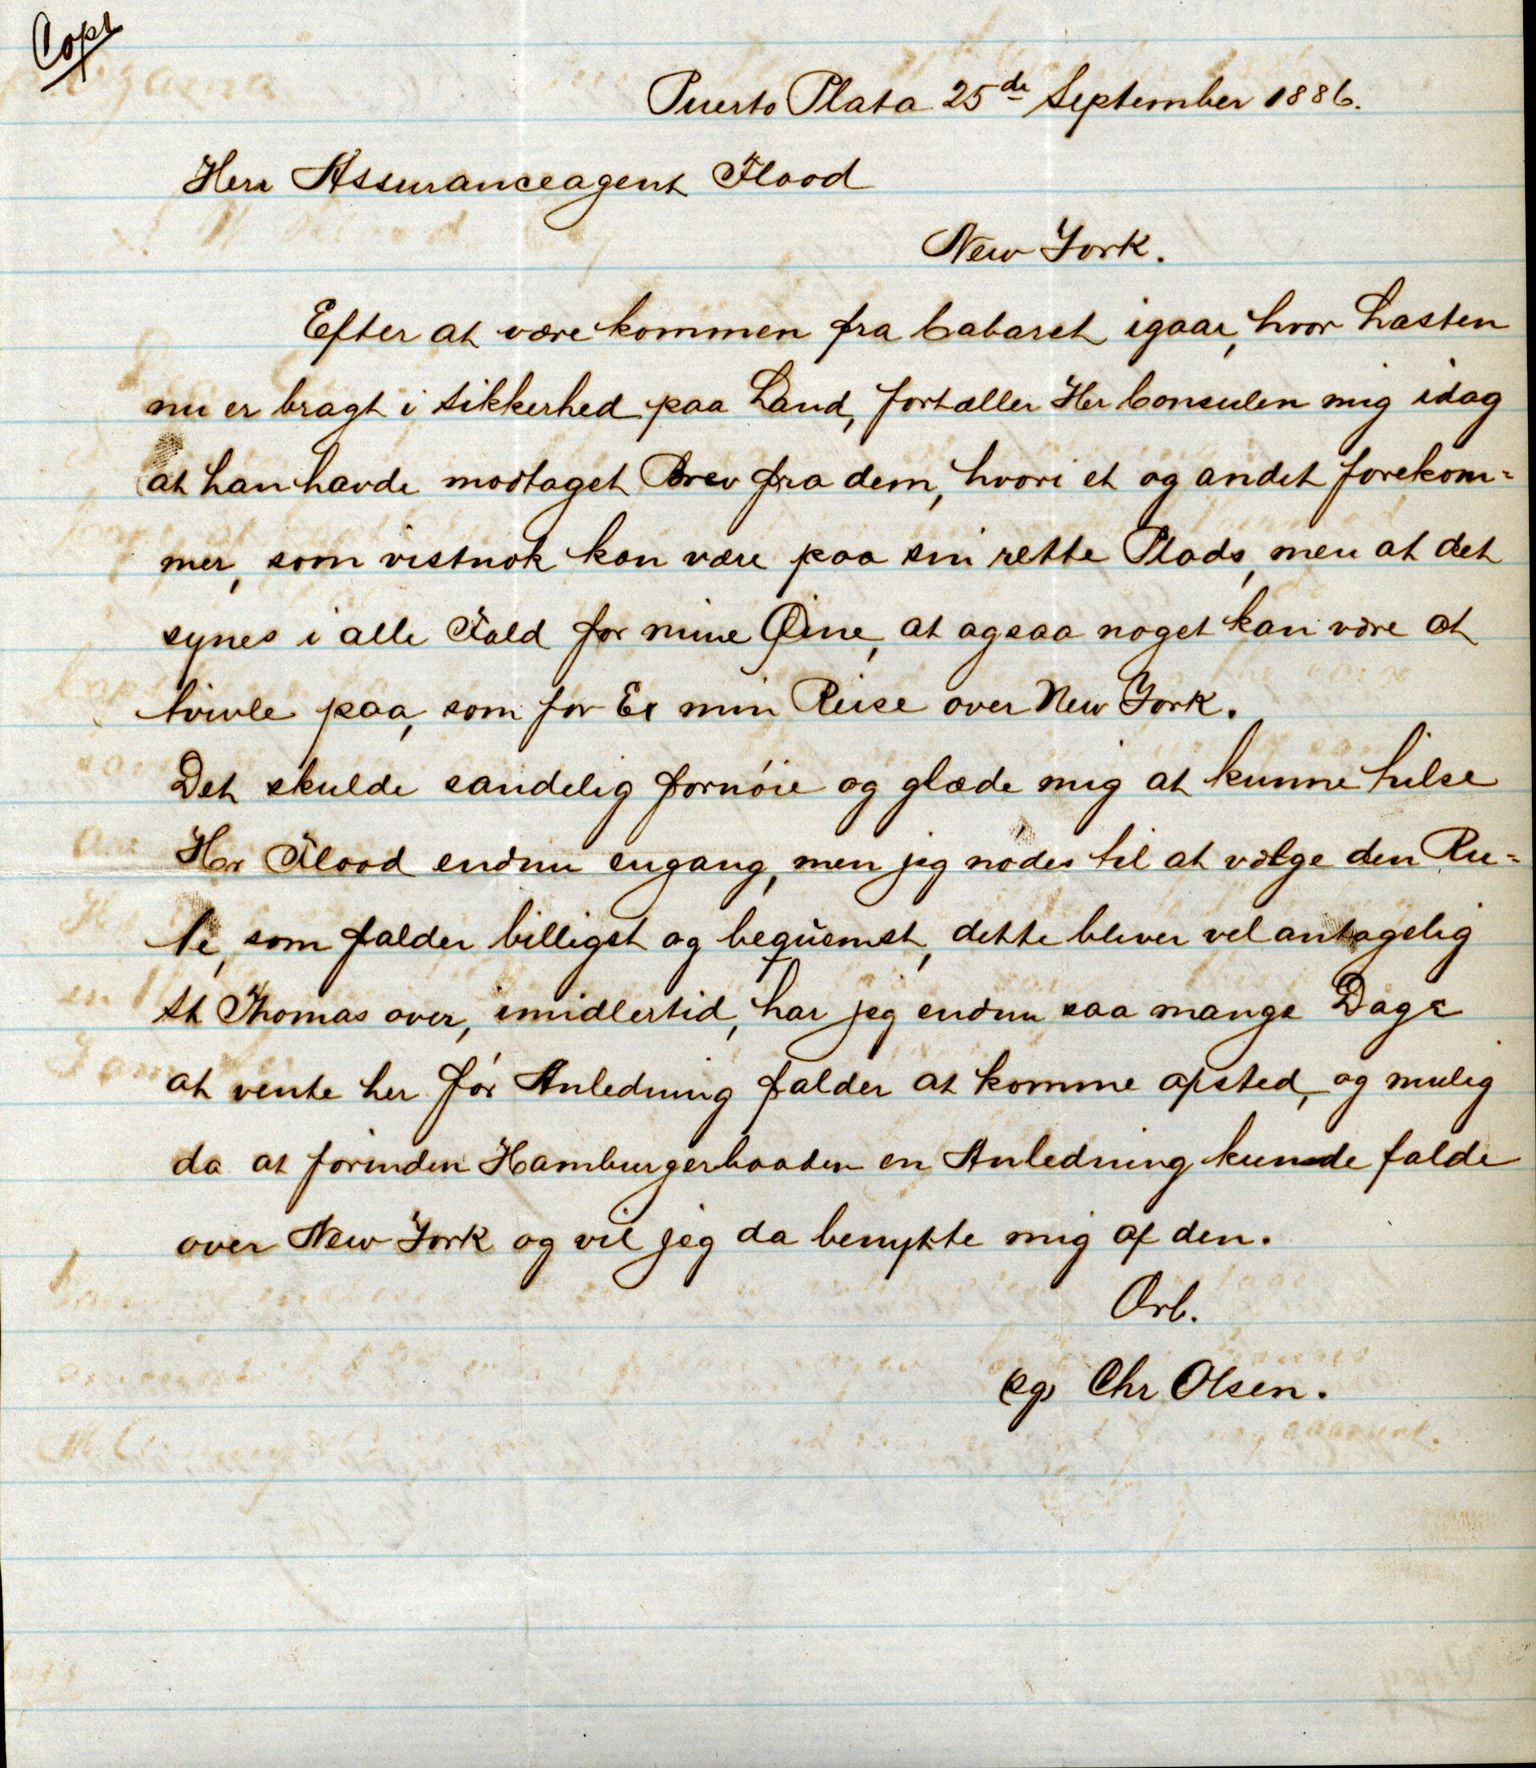 Copi
Puerto Plata 25de September 1886.
Herr Assuranceagent Flood
New York.
Efter at være kommen fra Cabaret igaar, hvor Lasten
nu er bragt i Sikkerhed paa Land, fortæller Hr Consulen mig idag
at han havde modtaget Brev fra dem, hvori et og andet forekom=
mer, som vistnok kan være paa sin rette Plads, men at det
synes i alle Fald for mine Øine, at ogsaa noget kan være at
tvivle paa, som for Ex min Reise over New York.
Det skulde sandelig fornöie og glæde mig at kunne hilse
Hr Flood endnu engang, men jeg nödes til at vælge den Ru=
te, som falder billigst og beqvemst, dette bliver vel antagelig
St Thomas over, imidlertid, har jeg endnu saa mange Dage
at vente her för Anledning falder at komme afsted, og mulig
da at förinden Hamburgerbaaden en Anledning kunde falde
over New York og vil jeg da benytte mig af den.
Ærb.
(sg) Chr Olsen.